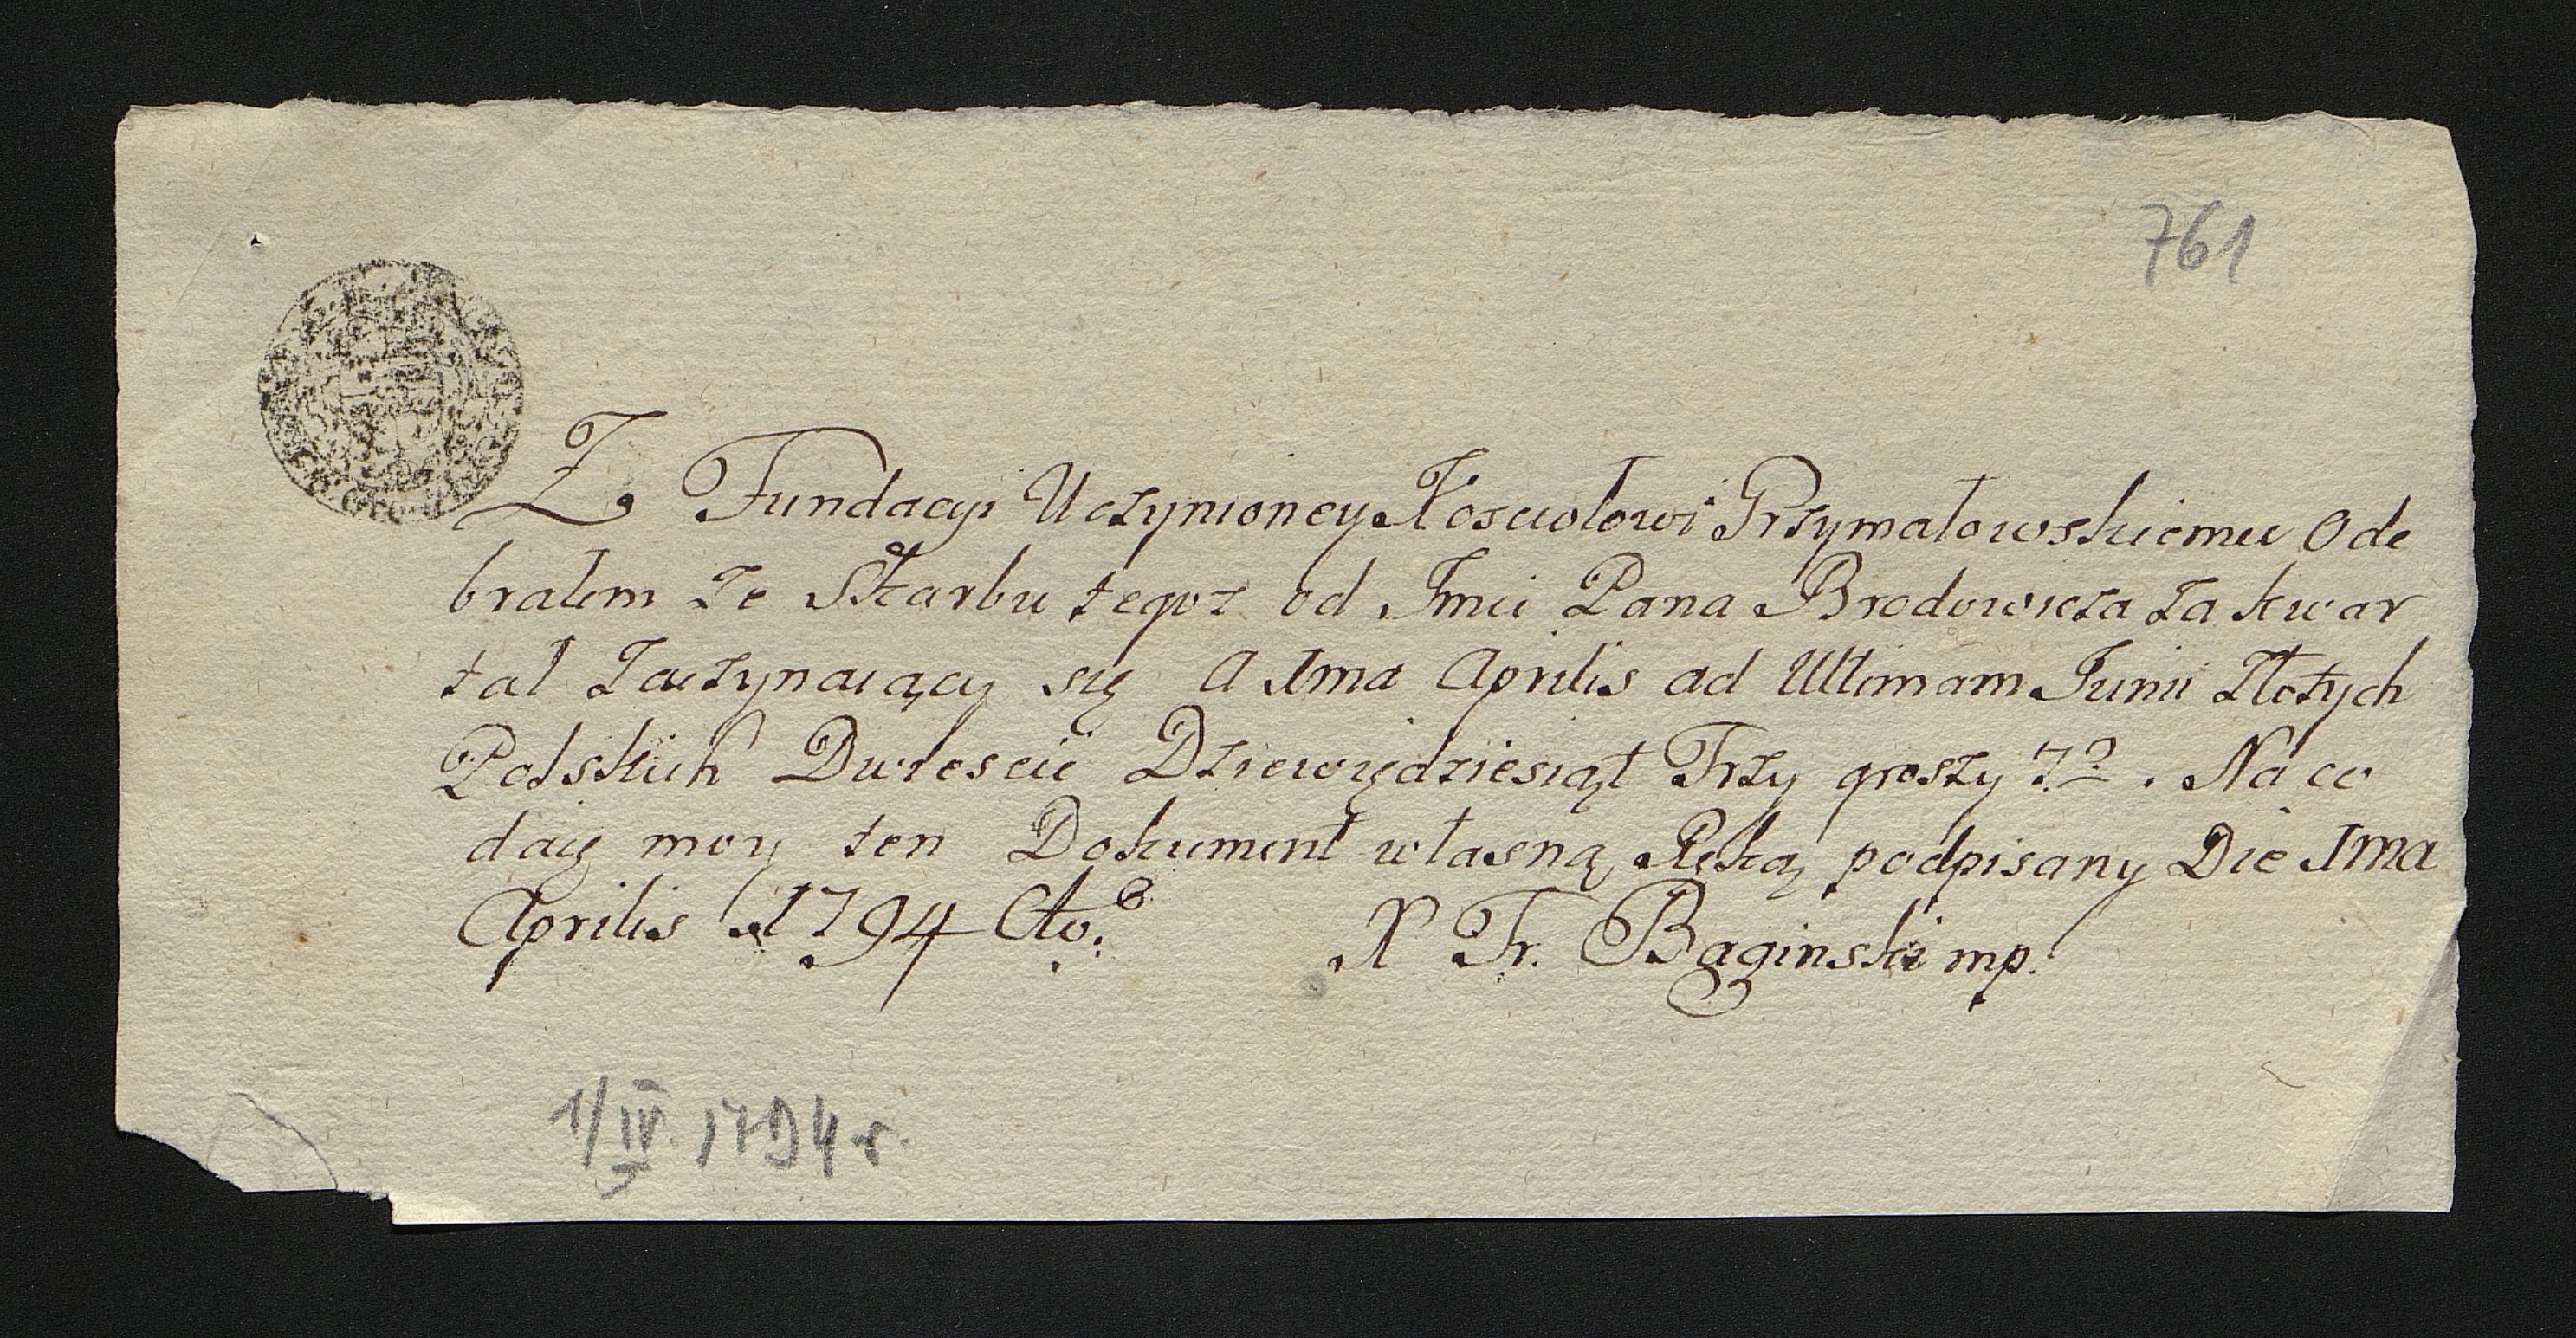 761
Z Fundacyi Uczynioney Kosciołowi Przymałowskiemu Ode
brałem ze Skarbu tegoż od Jmci Pana Brodowicza za kwar
tał Zaczynaiący się a 1ma Aprilis ad Ultimam Junii Złotych
Polskich Dwiescie Dziewiędziesiąt Trzy groszy Na co
daię moy ten Dokument własną Ręką podpisany Die 1ma
Aprilis 1794 X Fr. Baginski mp.
1/IV 1794 r.